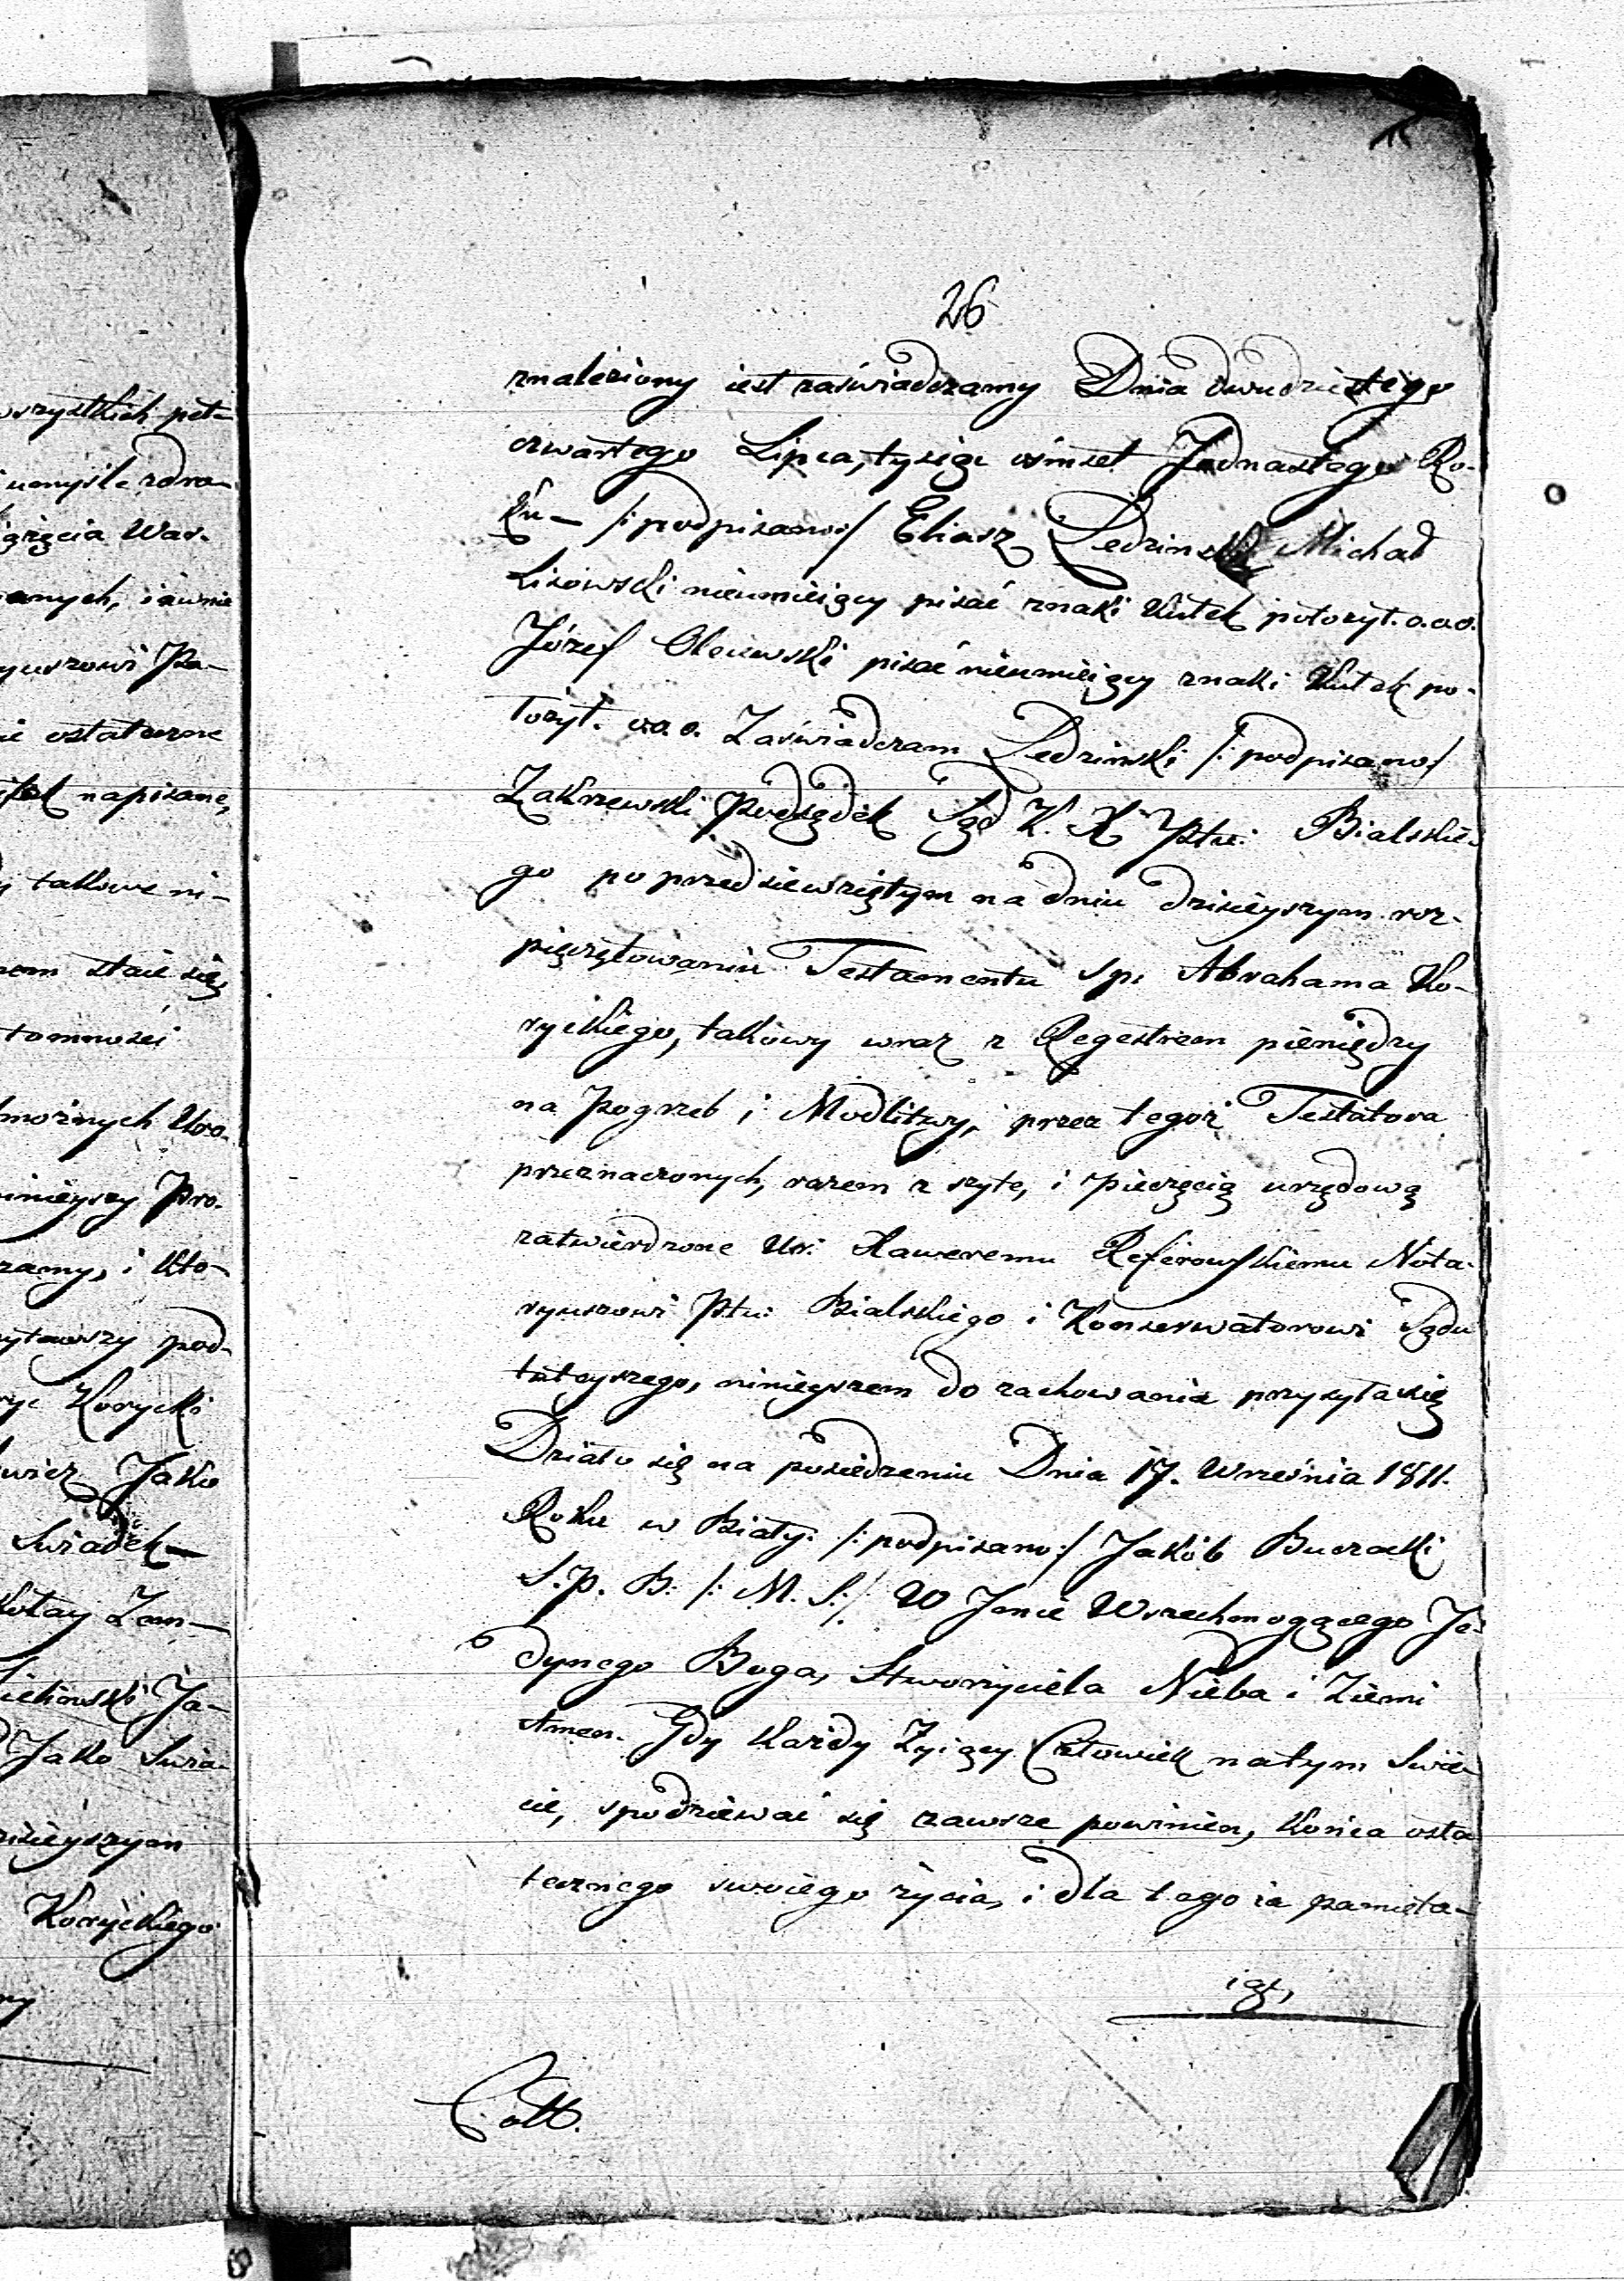 wszystkich pot-
umyśle zdro-
Wac.
anych, iawnie
yuszowi Po-
ie ostateczne
napisane,
takowe ni-
stało się,
tomności
możnych Uro.
ninieyszy Pro.
zamy, i Któ-
pod-
Koryckі
Jako
Swiadek —
kołay Zem-
Ja-
Jako Swia-
zisieyszym
Koryckiego
26
znaleziony iest zaświadczamy Dnia dwudziestego
czwartego Lipca, tysiąc ośmset Jednastego Ro-
ku — /: podpisano :/ Eliasz Ledzinski Michał
Lisowski nieumieiący pisać znaki Kutek położył. o.o.o.
Józef Olewski pisać nieumieiący znaki Kutek po-
łożył. o.o.o. Zaświadczam Ledzinski /: podpisano/
Zakrzewski Podsędek Sąd K. K Ptu: Bialskie-
go po przedsiewziętym na dniu dzisieyszym roz-
pięczętowaniu Testamentu Sp: Abrahama Ko-
ryckiego, takowy wraz z Regestrem pieniędzy
na Pogrzeb i Modlitwy, przez tegoż Testatora
przeznaczonych, razem z szyte, i pieczęcią urzędową
zatwierdzone Ur: Xaweremu Referowskiemu Nota-
ryuszowi Ptu: Bialskiego i Konserwatorowi Sądu
tuteyszego, ninieyszem do zachowania przysyła się
Działo się na posiedzeniu Dnia 17. Września 1811.
Roku w Biały. /: podpisano :/ Jakób Buczacki
S. P. B: /: M. S. :/ W Jmie Wszechmogącego Je-
dynego Boga, Stworzyciela Nieba i Ziemi
Amen. Gdy każdy Zyiący Człowiek natym Swie-
cie, spodziewać się zawsze powinien, końca osta
tecznego swoiego życia, i dla tego ia pamięta-
iąc,
Coll.